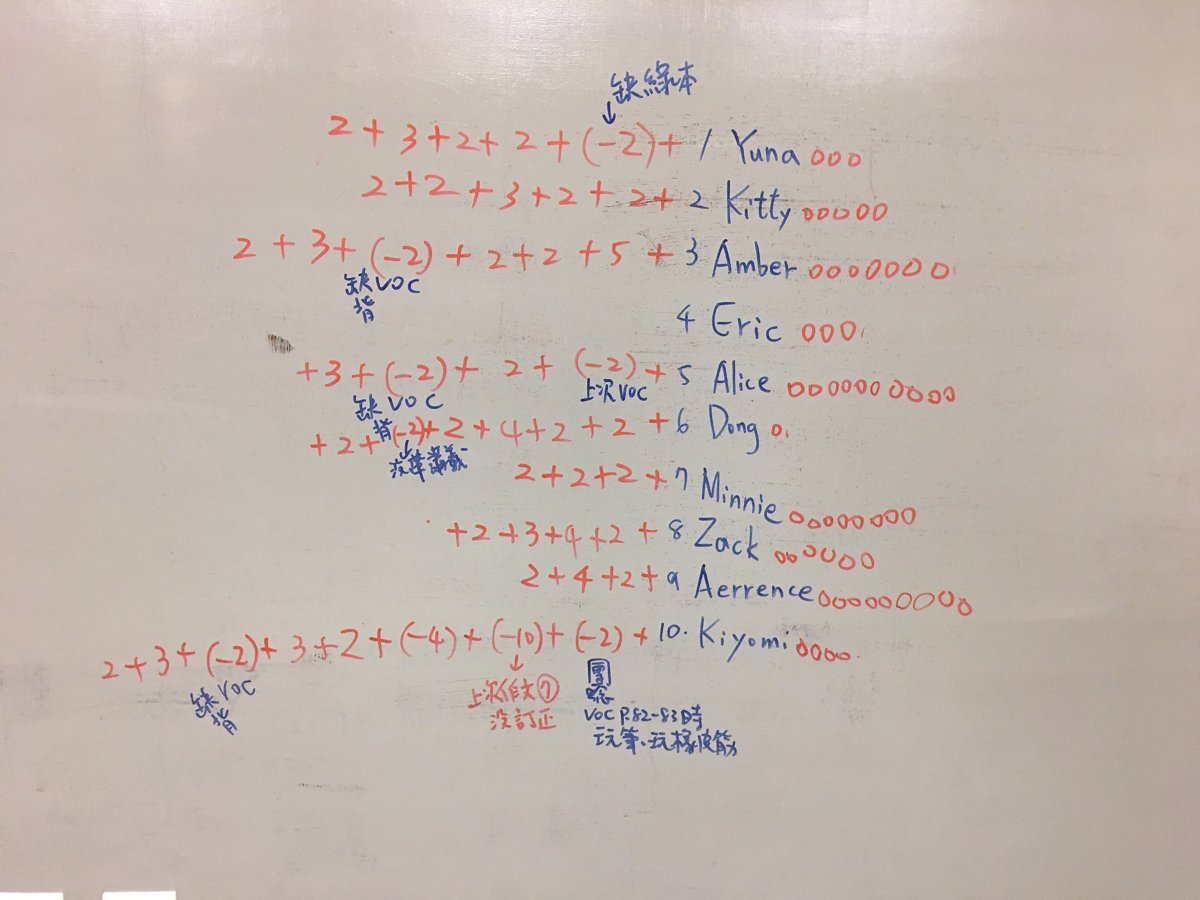 缺綠本
↓
2+3+2+2+(-2)+1 Yuna ooo
2+2+3+2+2+2 Kitty ooooo
2+3+(-2)+2+2+5+3 Amber ooooooo
缺VOC
背
4 Eric ooo
+3+(-2)+2+(-2)+5 Alice oooooooooo
缺VOC 上次VOC
背
+2+(-2)+2+4+2+2+6 Dong o
↓
沒帶講義
2+2+2+7 Minnie oooooooo
+2+3+4+2+8 Zack oooooo
2+4+2+9 Aerrence ooooooooo
2+3+(-2)+3+2+(-4)+(-10)+(-2)+10. Kiyomi oooo
缺VOC
背
↓
上次作文⑦
沒訂正
VOC P.82-83時
玩筆、玩橡皮筋